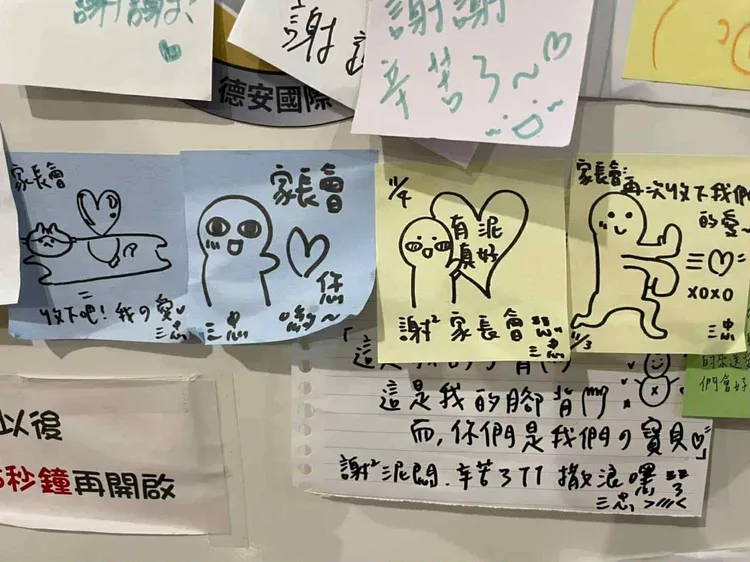 謝謝
德安國際
謝
謝謝
辛苦了~♡
家長會
收下吧!我の愛♥
三忠
家長會
♡您
喲~
三忠
11/4
有泥
真好
謝² 家長會
三忠
家長會 再次收下我們
的愛~
=♡=
XOXO
三忠
11/3
這是我的腳背
而,你們是我們の寶貝♡」
謝²泥悶.辛苦了TT 撒浪嘿
三忠 >///<
們會好
以後
秒鐘再開啟